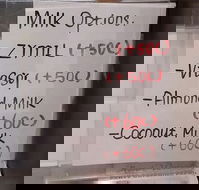 Milk Options
-Zymil (+50¢)
-Vitasoy (+50¢)
-Almond Milk
(+60¢)
-Coconut Milk
(+60¢)